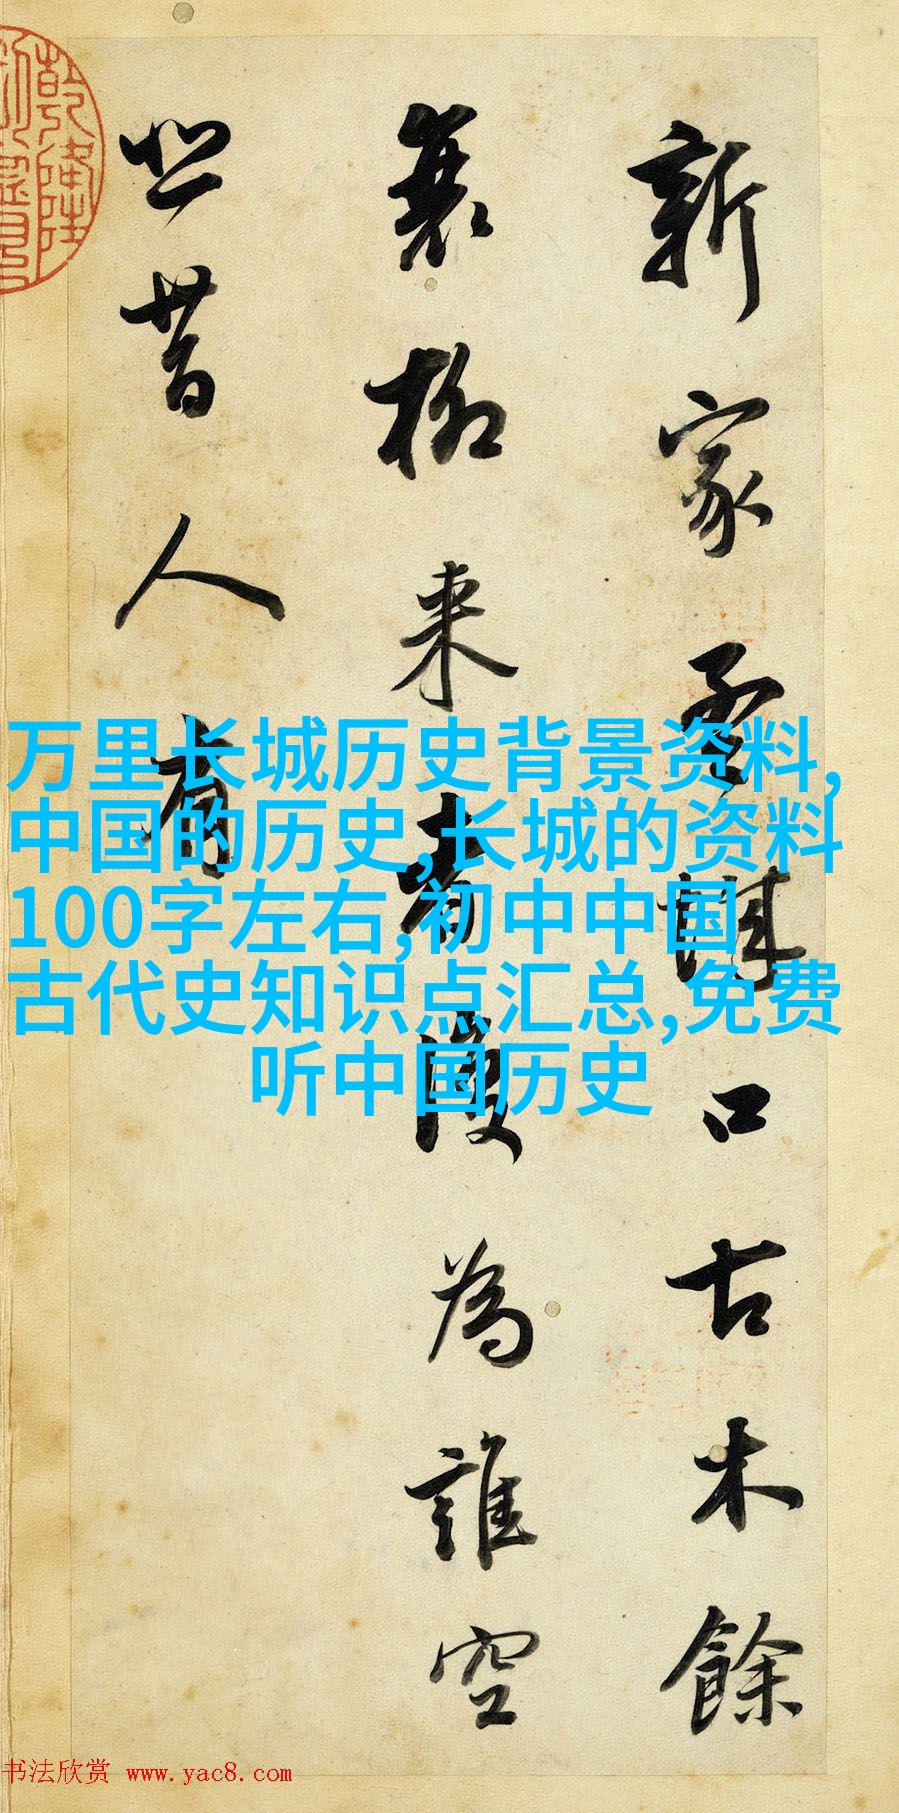 新家孟城口古木餘
衰柳來者復為誰空
悲昔人有
万里长城历史背景资料,
中国的历史,长城的资料
100字左右,初中中国
古代史知识点汇总,免费
听中国历史
书法欣赏 www.yac8.com